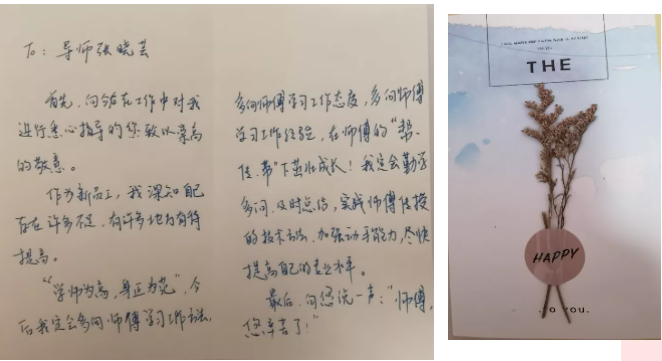 To：导师张晓芸
首先，向今后在工作中对我
进行悉心指导的您致以崇高
的敬意。
作为新员工，我深知自己
存在许多不足，有许多地方有待
提高。
“学师为高，身正为范”，今
后我定会多向师傅学习工作方法，
多向师傅学习工作态度，多向师傅
学习工作经验，在师傅的“帮、
传、带”下茁壮成长！我定会勤学
多问、及时总结，实践师傅传授
的技术方法，加强动手能力，尽快
提高自己的专业水平。
最后，向您说一声：“师傅，
您辛苦了！”
THE
HAPPY
to you.